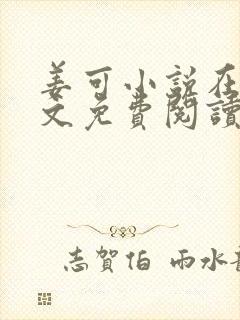 姜可小说在
文免費閱讀
志賀伯 雨水